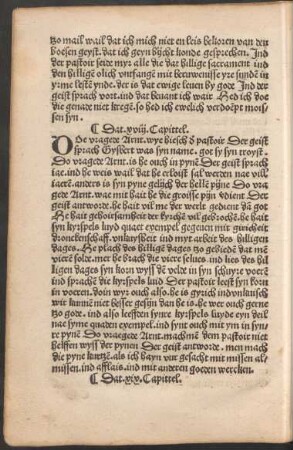 tzo mail wail dat ich mich niet en leis belioren van den
boesen geyst. dat ich geyn bijcht konde gesprechen. Ind
der pastoir seide myr alle die dat hillige sacrament ind
den hillige olich untfangē mit beruwenisse yre sundē in
yrme lestē ynde. der is dat ewige leuen by gode Ind der
geist sprach vort. ind dat bekant ich wair Hed ich doe
die genade niet kregē. so hed ich ewelich verdoēpt mois
sen syn.
¶ Dat .xviij. Capittel.
DOe vragede Arnt. wye hiesch d pastoir Der geist
sprach Gyssbert was syn name. got sy syn troyst.
Do vragede Arnt. is he ouch in pynē Der geist sprach
iae. ind he weis wail dat he erloist sal werden nae vill
iaerē. anders is syn pyne gelijch der hellē pijne Do vra
gede Arnt. wae mit hait he die groisse pijn vdient Der
geist antworde. he hait vil me der werlt gedient dā got
He hait gehoirsamheit der kyrchē vil gebrochē. he hait
syn kyrspels luyd quaet exempel gegeuen mit giricheit
dronckenschaff. unkuyscheit ind myt arbeit des hilligen
dages. He plach des hilligē dages tzo gebiedē dat mē
vierē solde. mer he brach die viere selues. ind lies des hil
ligen dages syn korn wyss dē velde in syn schuyre voerē
ind sprachē die kyrspels luid Der pastoir leest syn korn
in voeren. Doin wyr ouch also. he is gyrich ind onkuisch
wir kunnē niet besser gesijn dan he is. he wer ouch gerne
tzo gode. ind also leefften syne kyrspels luyde eyn deil
nae syme quaden exempel. ind synt ouch mit ym in syn
re pynē Do vragede Arnt. mach mē dem pastoir niet
helffen wyss der pynen Der geist antworde. men mach
die pyne kurtzē. als ich hayn vur gesacht mit missen al
missen. ind afflais. ind mit anderen goeden wercken.
¶ Dat .xix. Capittel.